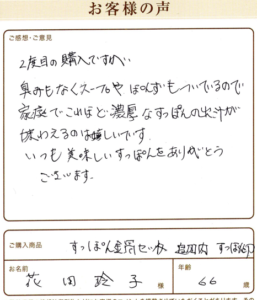 お客様の声
ご感想・ご意見
2度目の購入ですが、
臭みもなくスープや ぽんずもついているので
家庭で これほど 濃厚 なすっぽんの出汁が
味わえるのは嬉しいです。
いつも 美味しいすっぽんをありがとう
ございます。
ご購入商品
すっぽん
お名前
花 田 玲 子 様
年齢
66 歳